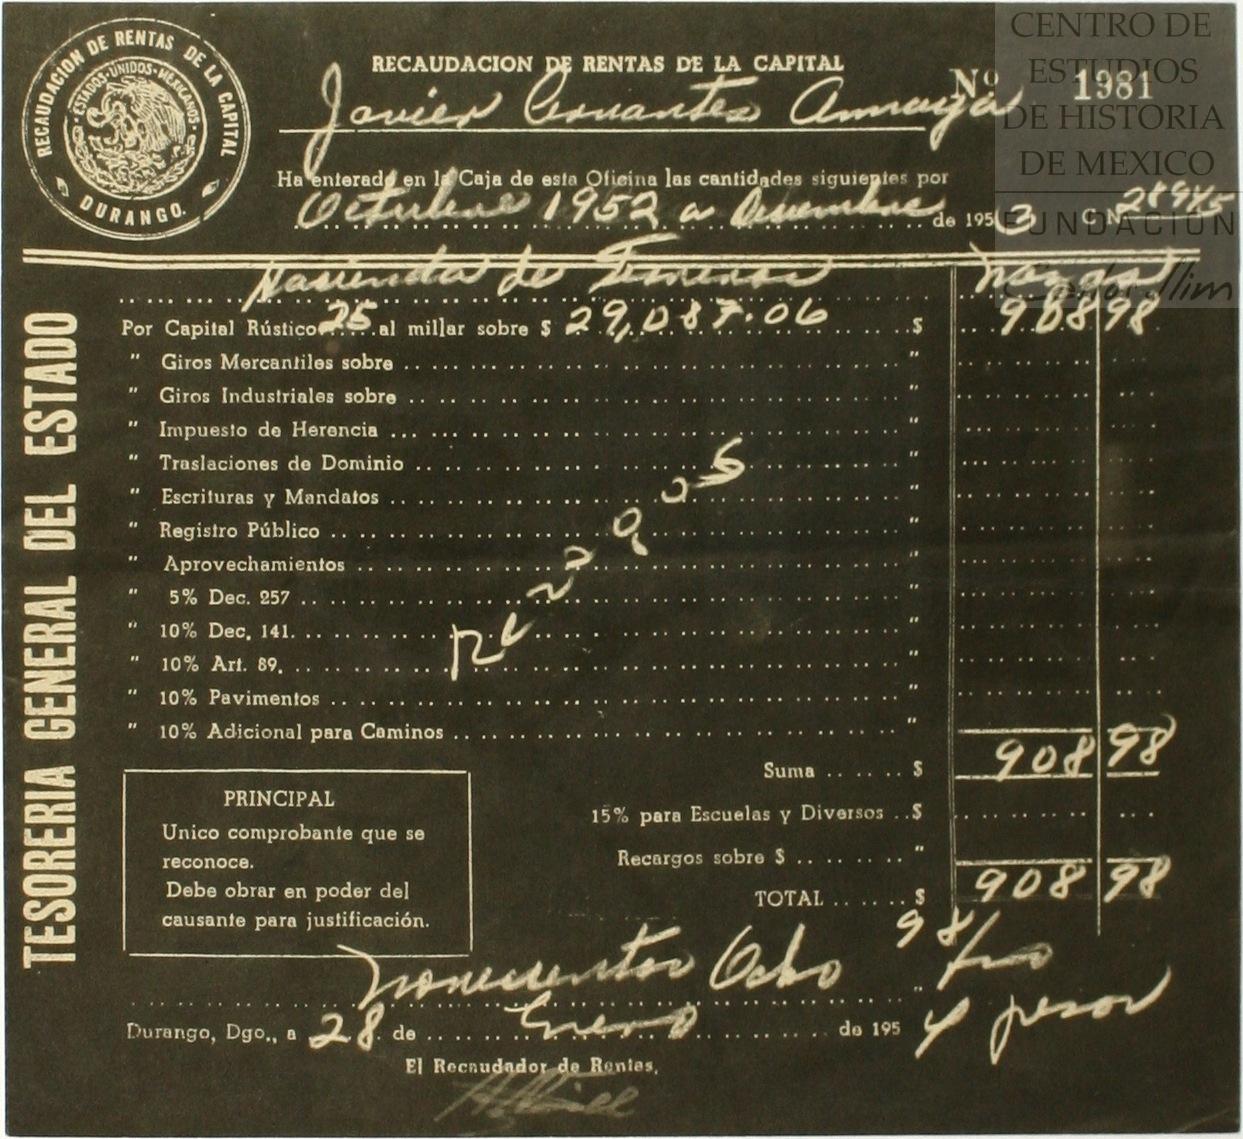 RECAUDACION DE RENTAS DE LA CAPITAL
DURANGO.
ESTADOS·UNIDOS·MEXICANOS
CENTRO DE
ESTUDIOS
DE HISTORIA
DE MEXICO
FUNDACIÓN
RECAUDACION DE RENTAS DE LA CAPITAL
Nº 1981
Javier Cervantes Amaya
Ha enterado en la Caja de esta Oficina las cantidades siguientes por
Octubre 1952 a Diciembre de 1953 C.N. 28945
TESORERIA GENERAL DEL ESTADO
Hacienda de
Por Capital Rústico 25 al millar sobre $ 29,087.06 $ 908 98
" Giros Mercantiles sobre "
" Giros Industriales sobre "
" Impuesto de Herencia "
" Traslaciones de Dominio "
" Escrituras y Mandatos "
" Registro Público "
" Aprovechamientos "
" 5% Dec. 257 "
" 10% Dec. 141. "
" 10% Art. 89. "
" 10% Pavimentos "
" 10% Adicional para Caminos "
Suma $ 908 98
15% para Escuelas y Diversos $
Recargos sobre $ "
TOTAL $ 908 98
PRINCIPAL
Unico comprobante que se
reconoce.
Debe obrar en poder del
causante para justificación.
novecientos Ocho 98/100 pesos
Durango, Dgo., a 28 de Enero de 1954
El Recaudador de Rentas,